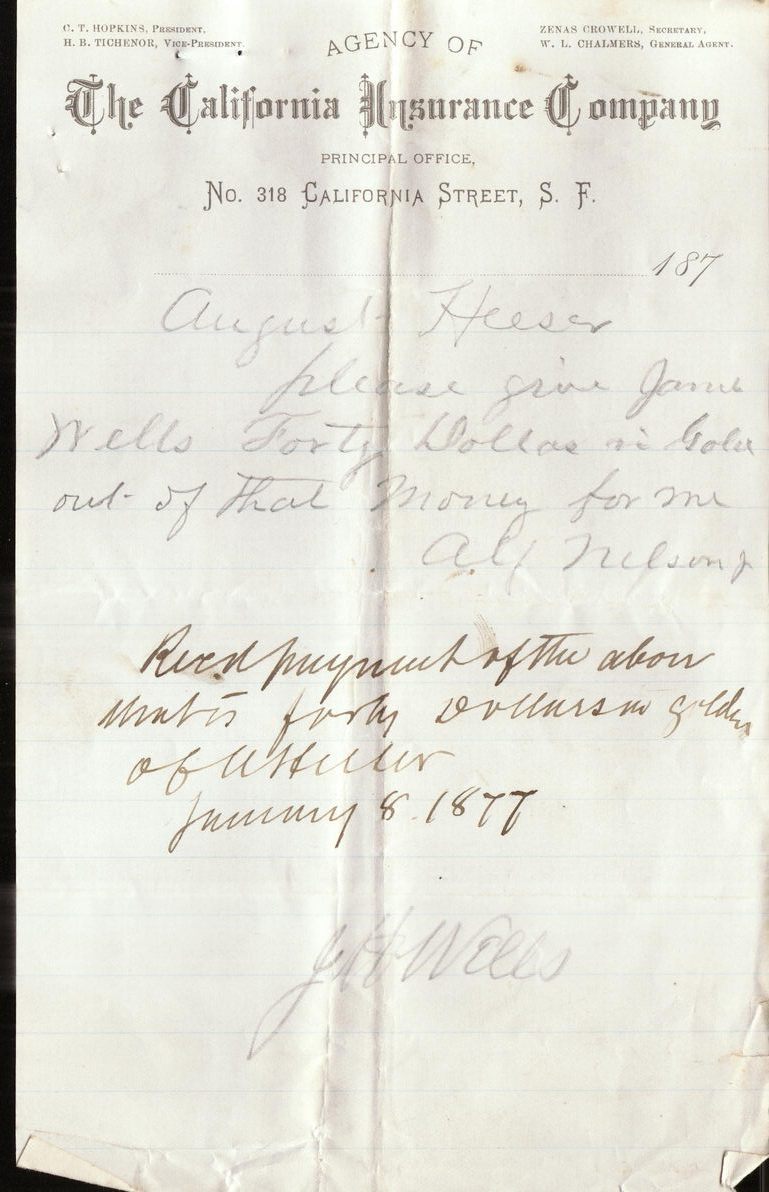 C. T. HOPKINS, PRESIDENT,
H. B. TICHENOR, VICE-PRESIDENT.
ZENAS CROWELL, SECRETARY,
W. L. CHALMERS, GENERAL AGENT.
AGENCY OF
The California Insurance Company
PRINCIPAL OFFICE,
No. 318 CALIFORNIA STREET, S. F.
187
August Heeser
please give James
Wells Forty Dollas in Gold
out of that Money for me
Alx Nelson
Recd payment of the above
forty Dollars in gold
of A Heeser
January 8. 1877
J H Wells